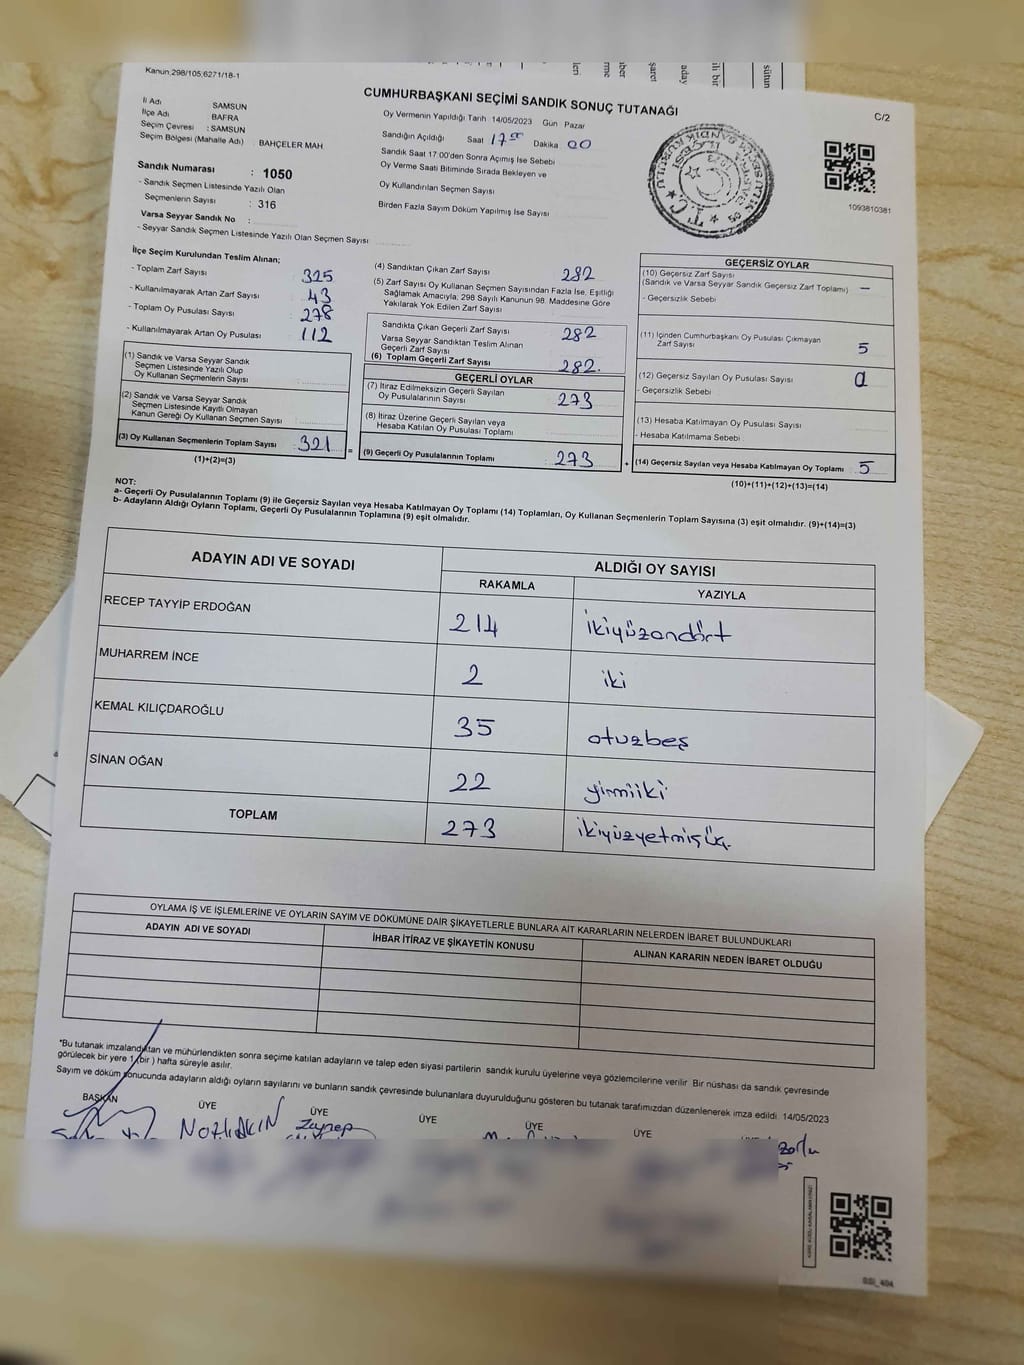 Kanun;298/105;6271/18-1
CUMHURBAŞKANI SEÇİMİ SANDIK SONUÇ TUTANAĞI
C/2
İl Adı SAMSUN
İlçe Adı BAFRA
Seçim Çevresi : SAMSUN
Seçim Bölgesi (Mahalle Adı) : BAHÇELER MAH
Sandık Numarası : 1050
- Sandık Seçmen Listesinde Yazılı Olan
Seçmenlerin Sayısı : 316
Varsa Seyyar Sandık No :
- Seyyar Sandık Seçmen Listesinde Yazılı Olan Seçmen Sayısı
Oy Vermenin Yapıldığı Tarih :14/05/2023 Gün Pazar
Sandığın Açıldığı Saat 17:00 Dakika 00
Sandık Saat 17:00'den Sonra Açımış İse Sebebi
Oy Verme Saati Bitiminde Sırada Bekleyen ve
Oy Kullandırılan Seçmen Sayısı
Birden Fazla Sayım Döküm Yapılmış İse Sayısı
1093810381
İlçe Seçim Kurulundan Teslim Alınan;
- Toplam Zarf Sayısı 325
- Kullanılmayarak Artan Zarf Sayısı 43
- Toplam Oy Pusulası Sayısı 278
- Kullanılmayarak Artan Oy Pusulası 112
(1) Sandık ve Varsa Seyyar Sandık
Seçmen Listesinde Yazılı Olup
Oy Kullanan Seçmenlerin Sayısı
(2) Sandık ve Varsa Seyyar Sandık
Seçmen Listesinde Kayıtlı Olmayan
Kanun Gereği Oy Kullanan Seçmen Sayısı
(3) Oy Kullanan Seçmenlerin Toplam Sayısı 321 =
(1)+(2)=(3)
(4) Sandıktan Çıkan Zarf Sayısı 282
(5) Zarf Sayısı Oy Kullanan Seçmen Sayısından Fazla İse, Eşitliği
Sağlamak Amacıyla; 298 Sayılı Kanunun 98. Maddesine Göre
Yakılarak Yok Edilen Zarf Sayısı
Sandıkta Çıkan Geçerli Zarf Sayısı 282
Varsa Seyyar Sandıktan Teslim Alınan
Geçerli Zarf Sayısı
(6) Toplam Geçerli Zarf Sayısı 282.
GEÇERLİ OYLAR
(7) İtiraz Edilmeksizin Geçerli Sayılan
Oy Pusulalarının Sayısı 273
(8) İtiraz Üzerine Geçerli Sayılan veya
Hesaba Katılan Oy Pusulası Toplamı
(9) Geçerli Oy Pusulalarının Toplamı 273 +
GEÇERSİZ OYLAR
(10) Geçersiz Zarf Sayısı
(Sandık ve Varsa Seyyar Sandık Geçersiz Zarf Toplamı) —
- Geçersizlik Sebebi
(11) İçinden Cumhurbaşkanı Oy Pusulası Çıkmayan
Zarf Sayısı 5
(12) Geçersiz Sayılan Oy Pusulası Sayısı
- Geçersizlik Sebebi
(13) Hesaba Katılmayan Oy Pusulası Sayısı
- Hesaba Katılmama Sebebi
(14) Geçersiz Sayılan veya Hesaba Katılmayan Oy Toplamı 5
(10)+(11)+(12)+(13)=(14)
NOT:
a- Geçerli Oy Pusulalarının Toplamı (9) ile Geçersiz Sayılan veya Hesaba Katılmayan Oy Toplamı (14) Toplamları, Oy Kullanan Seçmenlerin Toplam Sayısına (3) eşit olmalıdır. (9)+(14)=(3)
b- Adayların Aldığı Oyların Toplamı, Geçerli Oy Pusulalarının Toplamına (9) eşit olmalıdır.
ADAYIN ADI VE SOYADI ALDIĞI OY SAYISI
RAKAMLA YAZIYLA
RECEP TAYYİP ERDOĞAN 214 ikiyüzondört
MUHARREM İNCE 2 iki
KEMAL KILIÇDAROĞLU 35 otuzbeş
SİNAN OĞAN 22 yirmiiki
TOPLAM 273 ikiyüzyetmişüç.
OYLAMA İŞ VE İŞLEMLERİNE VE OYLARIN SAYIM VE DÖKÜMÜNE DAİR ŞİKAYETLERLE BUNLARA AİT KARARLARIN NELERDEN İBARET BULUNDUKLARI
ADAYIN ADI VE SOYADI İHBAR İTİRAZ VE ŞİKAYETİN KONUSU ALINAN KARARIN NEDEN İBARET OLDUĞU
*Bu tutanak imzalandıktan ve mühürlendikten sonra seçime katılan adayların ve talep eden siyasi partilerin sandık kurulu üyelerine veya gözlemcilerine verilir. Bir nüshası da sandık çevresinde
görülecek bir yere 1 (bir ) hafta süreyle asılır.
Sayım ve döküm sonucunda adayların aldığı oyların sayılarını ve bunların sandık çevresinde bulunanlara duyurulduğunu gösteren bu tutanak tarafımızdan düzenlenerek imza edildi. 14/05/2023
BAŞKAN ÜYE ÜYE ÜYE ÜYE ÜYE
Zeynep